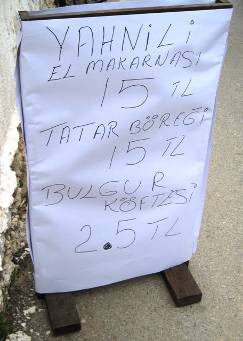 YAHNİLİ
EL MAKARNASI
15 TL
TATAR BÖREĞİ
15 TL
BULGUR
KÖFTESİ
2.5 TL